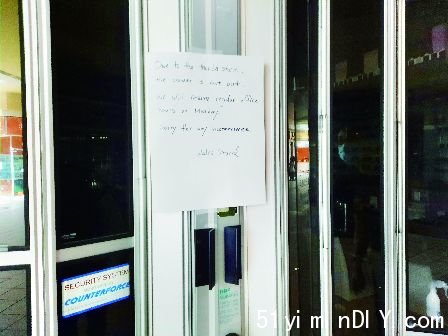 Due to the thunderstorm,
the power is out and
we will resume regular office
hours on Monday.
Sorry for any inconvenience
SECURITY SYSTEM
COUNTERFORCE
51yiminDIY.com